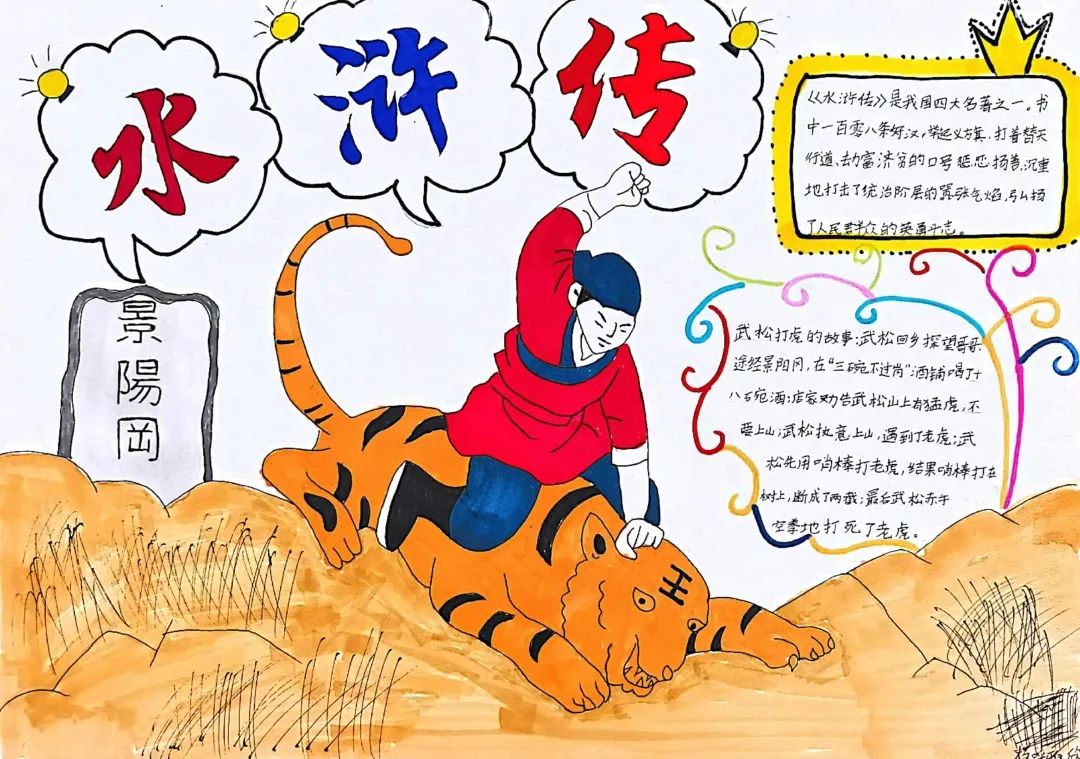 水浒传
《水浒传》是我国四大名著之一。书
中一百零八条好汉,举起义方旗,打着替天
行道、劫富济贫的口号惩恶扬善;沉重
地打击了统治阶层的嚣张气焰,弘扬
了人民群众的英勇斗志。
景陽岡
武松打虎的故事:武松回乡探望哥哥,
途经景阳冈,在“三碗不过岗”酒铺喝了十
八碗酒;店家劝告武松山上有猛虎,不
要上山;武松执意上山,遇到了老虎;武
松先用哨棒打老虎,结果哨棒打在
树上,断成了两截;最后武松赤手
空拳地打死了老虎。
王